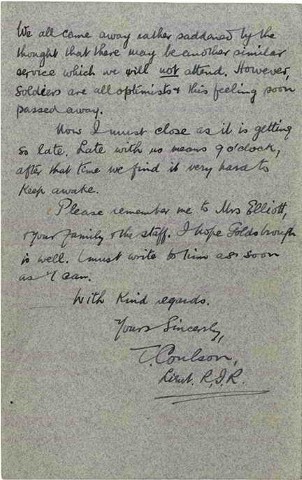 We all came away rather saddened by the
thought that there may be another similar
service which we will not attend. However,
soldiers are all optimists & this feeling soon
passed away.
Now I must close as it is getting
so late. Late with us means 9 o'clock,
after that time we find it very hard to
keep awake.
Please remember me to Mrs Elliott,
& your family & the staff. I hope Goldsbrough
is well. I must write to him as soon
as I can.
With kind regards.
Yours Sincerely,
T. Coulson,
Lieut. R.I.R.